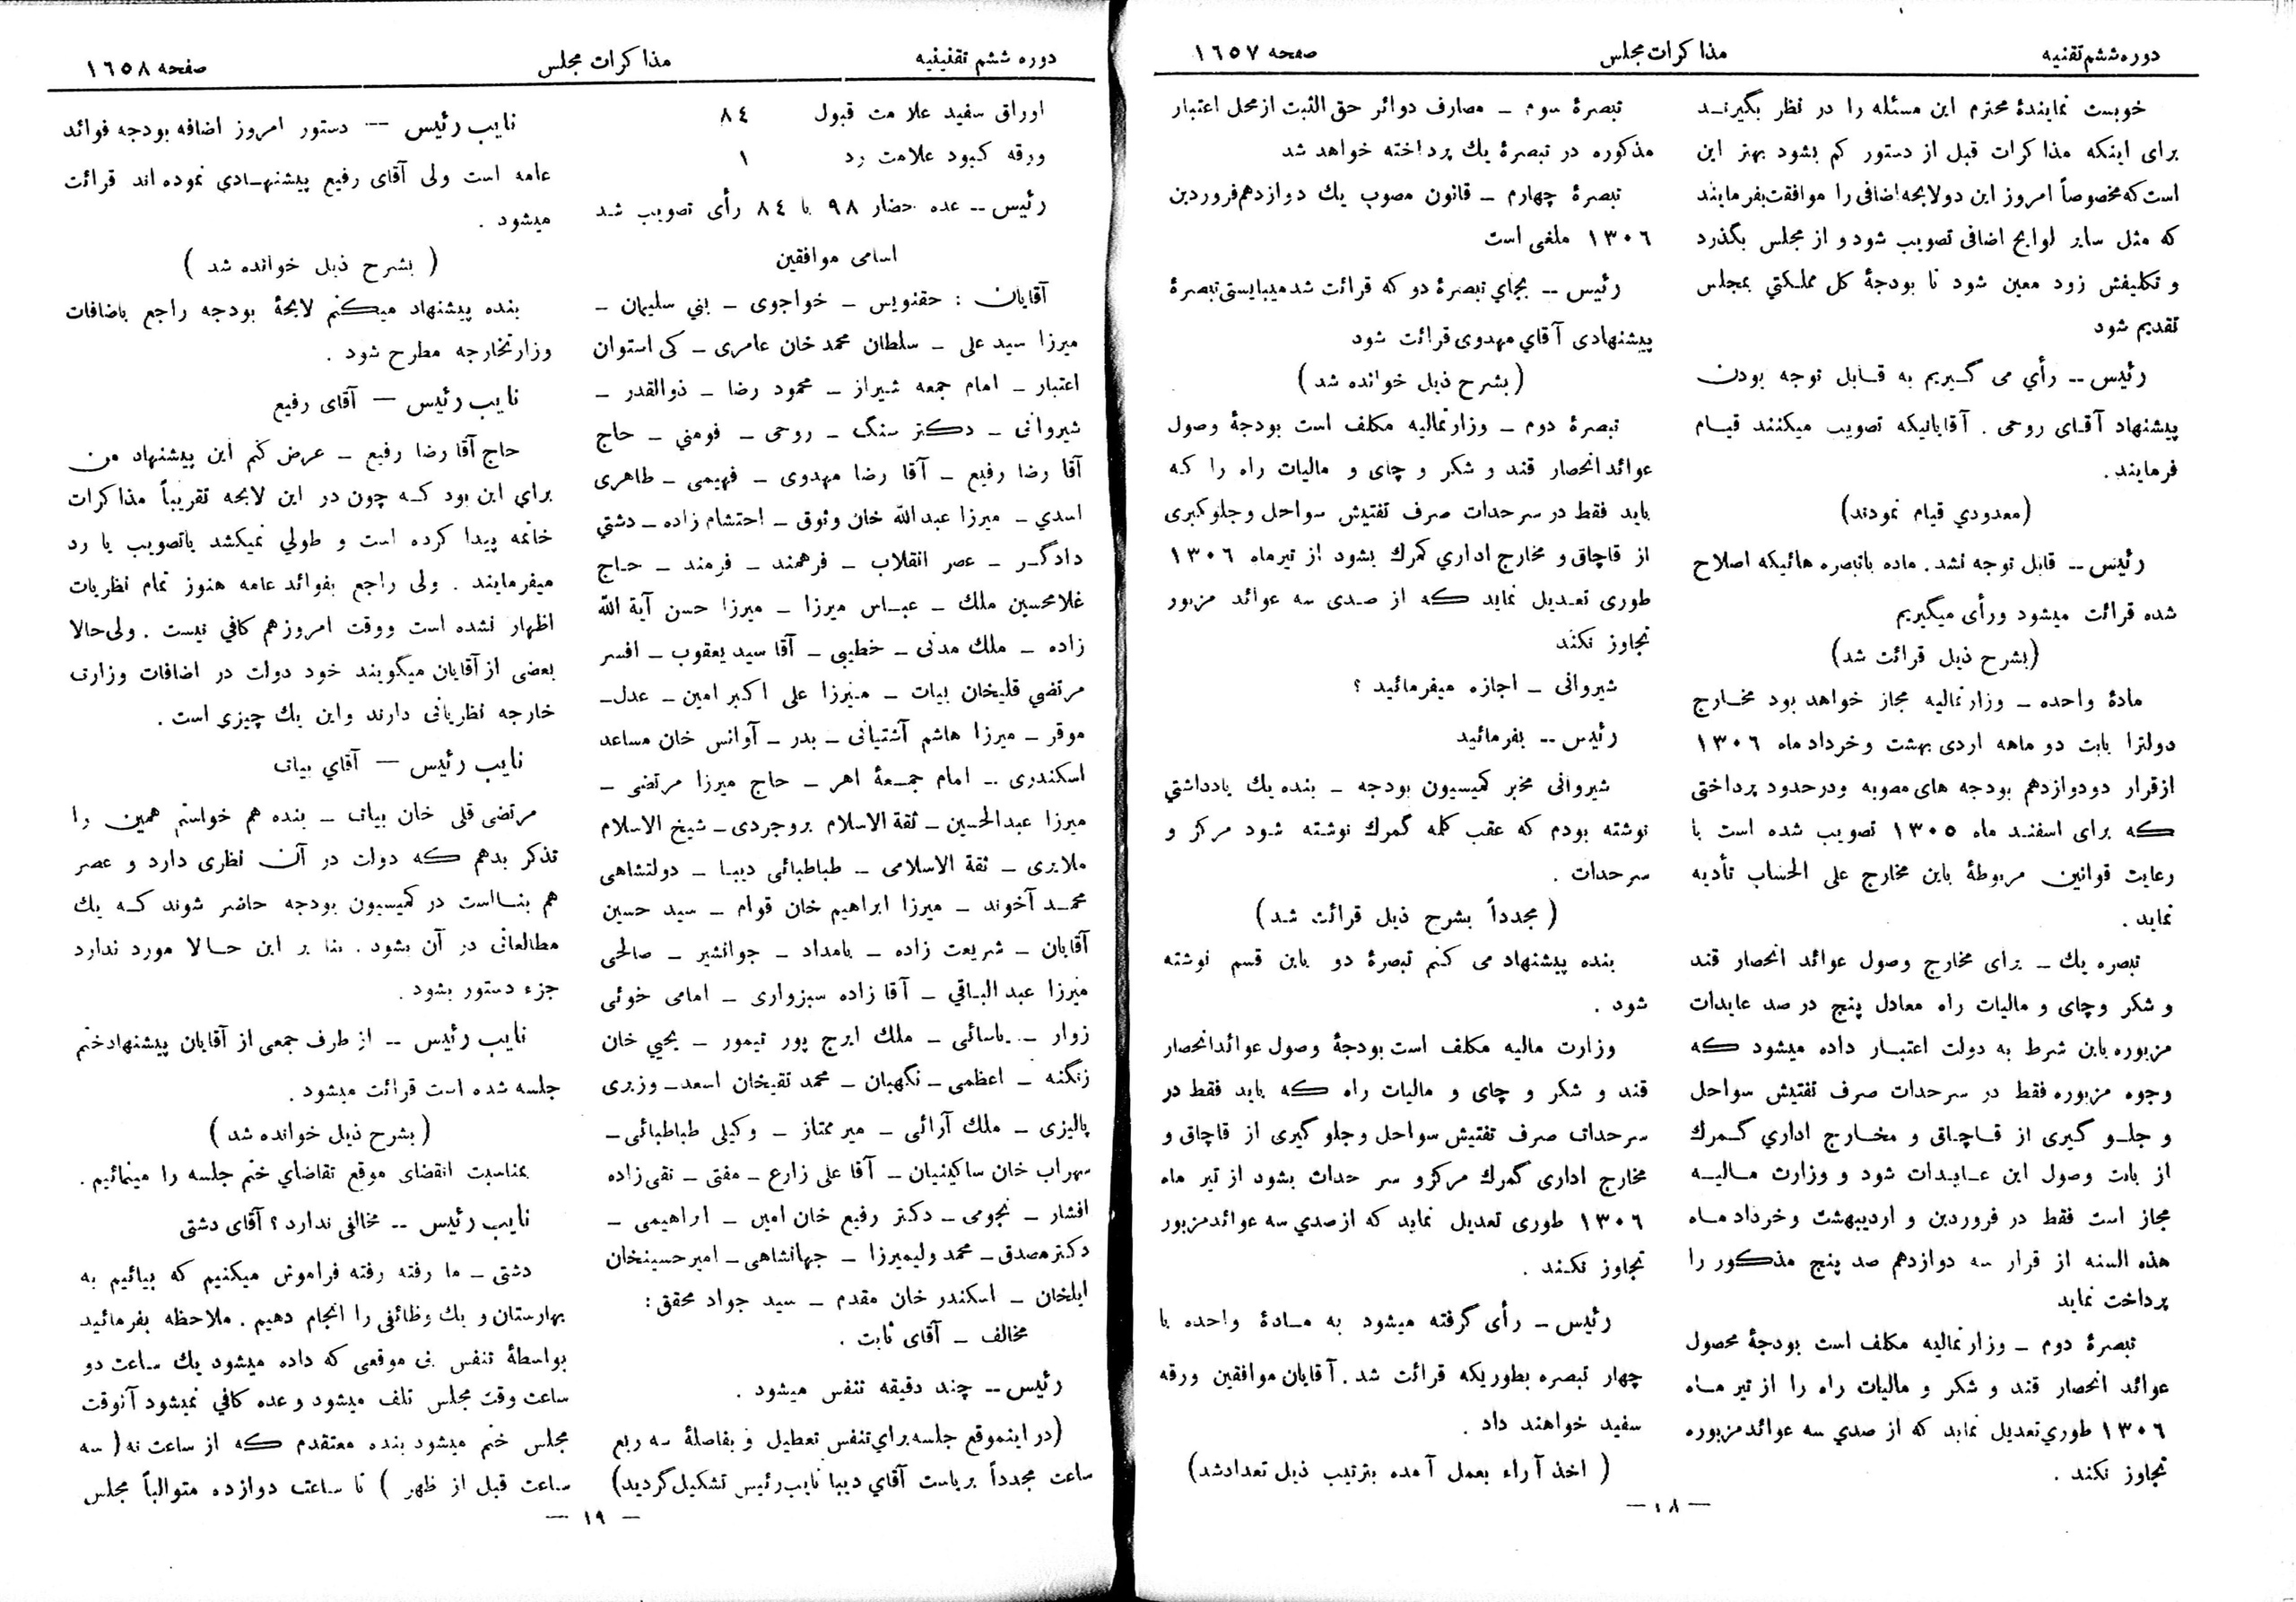 دوره ششم تقنیه
مذاکرات مجلس
صفحه ۱٦٥۷
خوبست نمایندهٔ محترم این مسئله را در نظر بگیرنـد
برای اینکه مذاکرات قبل از دستور کم بشود بهتر این
است که مخصوصاً امروز این دو لایحه اضافی را موافقت بفرمایند
که مثل سایر لوایح اضافی تصویب شود و از مجلس بگذرد
و تکلیفش زود معین شود تا بودجهٔ کل مملکتي بمجلس
تقدیم شود
رئیس -- رأي می گـیریم به قـابل توجه بودن
پیشنهاد آقـای روحی . آقایانیکه تصویب میکنند قیـام
فرمایند.
(معدودي قیام نمودند)
رئیس -- قابل توجه نشد. ماده باتبصره هائیکه اصلاح
شده قرائت میشود ورأی میگیریم
(بشرح ذیل قرائت شد)
مادهٔ واحده ـ وزارتمالیه مجاز خواهد بود مخـارج
دولترا بابت دو ماهه اردی بهشت و خرداد ماه ۱۳۰٦
از قرار دودوازدهم بودجه های مصوبه ودرحدود پرداختی
که برای اسفنـد ماه ۱۳۰٥ تصویب شده است با
رعایت قوانین مربوطهٔ باین مخارج علی الحساب تأدیه
نماید .
تبصره یك ـ برای مخارج وصول عوائد انحصار قند
و شکر وچای و مالیات راه معادل پنج در صد عایدات
مزبوره باین شرط به دولت اعتبـار داده میشود که
وجوه مزبوره فقط در سرحدات صرف تفتیش سواحل
و جلـو گیری از قـاچـاق و مخـارج اداري گـمرك
از بابت وصول این عـایـدات شود و وزارت مـالیـه
مجاز است فقط در فروردین و اردیبهشت و خرداد مـاه
هذه السنه از قرار سه دوازدهم صد پنج مذکور را
پرداخت نماید
تبصرهٔ دوم ـ وزارتمالیه مکلف است بودجهٔ محصول
عوائد انحصار قند و شکر و مالیات راه را از تیر مـاه
۱۳۰٦ طوري تعدیل نماید که از صدي سه عوائد مزبوره
تجاوز نکند .
تبصرهٔ سوم ـ مصارف دوائر حق الثبت از محل اعتبار
مذکوره در تبصرهٔ یك پرداخته خواهد شد
تبصرهٔ چهارم ـ قانون مصوب یك دوازدهم فروردین
۱۳۰٦ ملغی است
رئیس -- بجاي تبصرهٔ دو که قرائت شد میبایستی تبصرهٔ
پیشنهادی آقاي مهدوی قرائت شود
(بشرح ذیل خوانده شد)
تبصرهٔ دوم ـ وزارتمالیه مکلف است بودجهٔ وصول
عوائد انحصار قند و شکر و چای و مالیات راه را کـه
باید فقط در سرحدات صرف تفتیش سواحل وجلوگیری
از قاچاق و مخارج اداري گمرك بشود از تیر ماه ۱۳۰٦
طوری تعـدیل نماید که از صـدی سه عوائد مزبور
تجاوز نکند
شیروانی ـ اجازه میفرمائید ؟
رئیس -- بفرمائید
شیروانی مخبر کمیسیون بودجه ـ بنده یك یادداشتي
نوشته بودم که عقب کلمه گمرك نوشته شود مرکز و
سرحدات .
(مجدداً بشرح ذیل قرائت شـد)
بنده پیشنهاد می کنم تبصرهٔ دو باین قسم نوشته
شود .
وزارت مالیه مکلف است بودجهٔ وصول عوائد انحصار
قند و شکر و چای و مالیات راه که باید فقط در
سرحدات صرف تفتیش سواحل وجلو گیری از قاچاق و
مخارج اداری گمرك مرکزو سر حدات بشود از تیر ماه
۱۳۰٦ طوری تعدیل نماید که از صدي سه عوائد مزبور
تجاوز نکند .
رئیس ـ رأی گرفته میشود به مـادهٔ واحده با
چهار تبصره بطوریکه قرائت شد. آقایان موافقین ورقه
سفید خواهند داد .
( اخذ آراء بعمل آمده بترتیب ذیل تعداد شد)
— ۱۸ —
دوره ششم تقنینیه
مذاکرات مجلس
صفحه ۱٦٥۸
اوراق سفید علامت قبول ۸٤
ورقه کبود علامت رد ۱
رئیس -- عده حضار ۹۸ با ۸٤ رأی تصویب شـد
اسامی موافقین
آقایان : حقنویس ـ خواجوی ـ بني سلیمان ـ
میرزا سید علی ـ سلطان محمد خان عامری ـ کی استوان
اعتبار ـ امام جمعه شیراز ـ محمود رضا ـ ذوالقدر ـ
شیروانی ـ دکتر سنگ ـ روحی ـ فومني ـ حاج
آقا رضا رفیع ـ آقا رضا مهدوی ـ فهیمی ـ طاهری
اسدي ـ میرزا عبدالله خان وثوق ـ احتشام زاده ـ دشتي
دادگـر ـ عصر انقلاب ـ فرهمند ـ فرمند ـ حـاج
غلامحسین ملك ـ عبـاس میرزا ـ میرزا حسن آیة الله
زاده ـ ملك مدنی ـ خطیبی ـ آقا سید یعقوب ـ افسر
مرتضي قلیخان بیات ـ میرزا علی اکبر امین ـ عدل ـ
موقر ـ میرزا هاشم آشتیانی ـ بدر ـ آوانس خان مساعد
اسکندری ـ امام جمـعهٔ اهر ـ حاج میرزا مرتضی ـ
میرزا عبدالحسین ـ ثقة الاسلام بروجردی ـ شیخ الاسلام
ملایری ـ ثقة الاسلامی ـ طباطبائی دیبـا ـ دولتشاهی
محمـد آخوند ـ میرزا ابراهیم خان قوام ـ سید حسین
آقایان ـ شریعت زاده ـ بامداد ـ جوانشیر ـ صالحی
میرزا عبد البـاقي ـ آقا زاده سبزواری ـ امامی خوئی
زوار ـ یاسائی ـ ملك ایرج پور تیمور ـ یحیي خان
زنگنه ـ اعظمی ـ نگهبان ـ محمد تقیخان اسعد ـ وزیری
پالیزی ـ ملك آرائی ـ میر ممتاز ـ وکیلی طباطبائی ـ
سهراب خان ساکینیان ـ آقا علی زارع ـ مفتی ـ تقی زاده
افشار ـ نجومی ـ دکتر رفیع خان امین ـ ابراهیمی ـ
دکتر مصدق ـ محمد ولیمیرزا ـ جهانشاهی ـ امیر حسینخان
ایلخان ـ اسکندر خان مقدم ـ سید جواد محقق :
مخالف ـ آقای ثابت .
رئیس -- چند دقیقه تنفس میشود .
(در اینموقع جلسه براي تنفس تعطیل و بفاصلهٔ سه ربع
ساعت مجدداً بریاست آقاي دیبا نایب رئیس تشکیل گردید)
نایب رئیس -- دستور امروز اضافه بودجه فوائد
عامه است ولی آقای رفیع پیشنهـادي نموده اند قرائت
میشود .
( بشرح ذیل خوانده شد )
بنده پیشنهاد میکنم لایحهٔ بودجه راجع باضافات
وزارتخارجه مطرح شود .
نایب رئیس — آقای رفیع
حاج آقا رضا رفیع ـ عرض کنم این پیشنهاد من
براي این بود کـه چون در این لایحه تقریباً مذاکرات
خاتمه پیدا کرده است و طولي نمیکشد باتصویب یا رد
میفرمایند . ولی راجع بفوائد عامه هنوز تمام نظریات
اظهار نشده است ووقت امروز هم کافي نیست . ولی حالا
بعضی از آقایان میگویند خود دولت در اضافات وزارت
خارجه نظریاتی دارند واین یك چیزی است .
نایب رئیس — آقاي بیات
مرتضی قلی خان بیات ـ بنده هم خواستم همین را
تذکر بدهم که دولت در آن نظری دارد و عصر
هم بنـااست در کمیسیون بودجه حاضر شوند کـه یك
مطالعاتی در آن بشود . بنا بر این حـالا مورد ندارد
جزء دستور بشود .
نایب رئیس -- از طرف جمعی از آقایان پیشنهاد ختم
جلسه شده است قرائت میشود .
(بشرح ذیل خوانده شد)
بمناسبت انقضای موقع تقاضاي ختم جلسه را مینمائیم .
نایب رئیس -- مخالفی ندارد ؟ آقای دشتی
دشتی ـ ما رفته رفته فراموش میکنیم که بیائیم به
بهارستان و یك وظائفی را انجام دهیم . ملاحظه بفرمائید
بواسطهٔ تنفس بی موقعی که داده میشود یك ساعت دو
ساعت وقت مجلس تلف میشود و عده کافي نمیشود آنوقت
مجلس ختم میشود بنده معتقدم که از ساعت نه ( سه
ساعت قبل از ظهر ) تا ساعت دوازده متوالیاً مجلس
— ۱۹ —